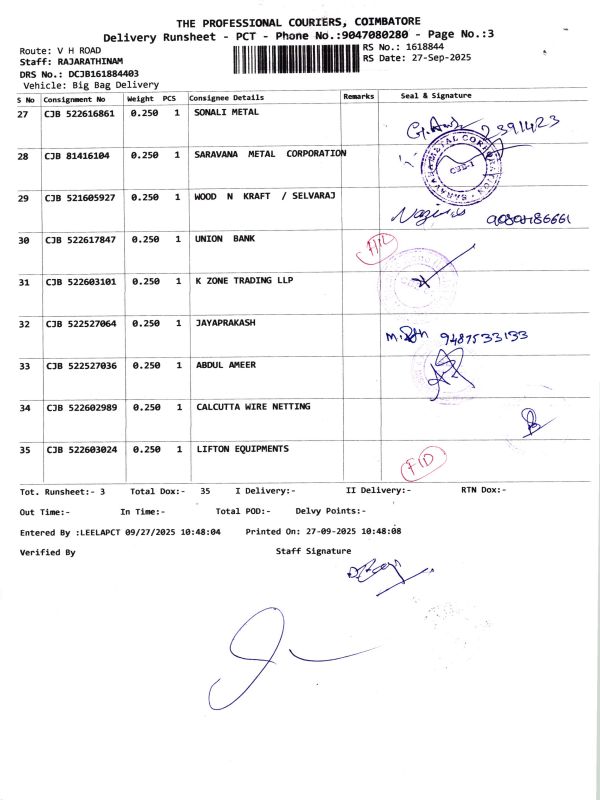 THE PROFESSIONAL COURIERS, COIMBATORE
Delivery Runsheet - PCT - Phone No.:9047080280 - Page No.:3
Route: V H ROAD
RS No.: 1618844
Staff: RAJARATHINAM
RS Date: 27-Sep-2025
DRS No.: DCJB161884403
Vehicle: Big Bag Delivery
S No Consignment No Weight PCS Consignee Details Remarks Seal & Signature
27 CJB 522616861 0.250 1 SONALI METAL 2391423
28 CJB 81416104 0.250 1 SARAVANA METAL CORPORATION
SARAVANA METAL CORPORATION
CBE-1
29 CJB 521605927 0.250 1 WOOD N KRAFT / SELVARAJ
30 CJB 522617847 0.250 1 UNION BANK
31 CJB 522603101 0.250 1 K ZONE TRADING LLP
32 CJB 522527064 0.250 1 JAYAPRAKASH 9487533133
33 CJB 522527036 0.250 1 ABDUL AMEER
34 CJB 522602989 0.250 1 CALCUTTA WIRE NETTING
35 CJB 522603024 0.250 1 LIFTON EQUIPMENTS FID
Tot. Runsheet:- 3 Total Dox:- 35 I Delivery:- II Delivery:- RTN Dox:-
Out Time:- In Time:- Total POD:- Delvy Points:-
Entered By :LEELAPCT 09/27/2025 10:48:04 Printed On: 27-09-2025 10:48:08
Verified By Staff Signature